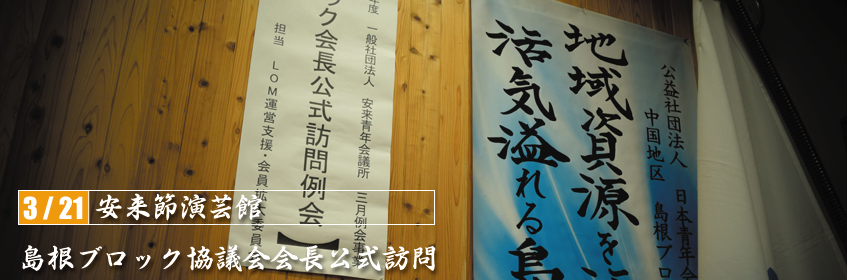 年度 一般社団法人 安来青年会議所 三月例会事
ック会長公式訪問例会【
担当 LOM運営支援・会員拡
委員
公益社団法人 日本青年会
中国地区 島根ブロ
地域資源を
活気溢れる島
3/21 安来節演芸館
島根ブロック協議会会長公式訪問